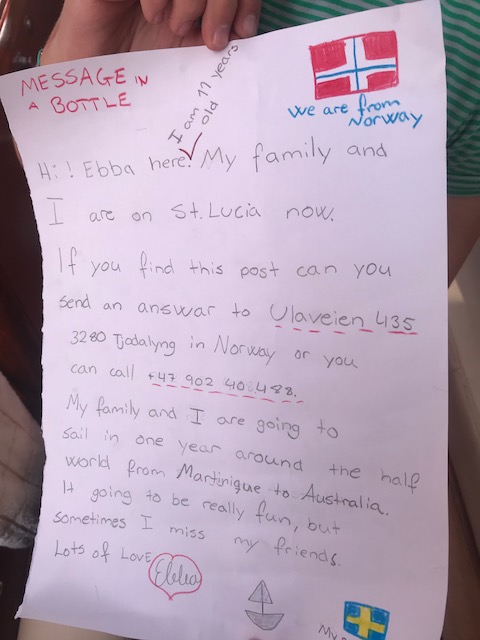 MESSAGE IN
A BOTTLE
I am 11 years
old
We are from
Norway
Hi! Ebba here. My family and
I are on St. Lucia now.
If you find this post can you
send an answar to Ulaveien 435
3280 Tjodalyng in Norway or you
can call +47 902 40 488.
My family and I are going to
sail in one year around the half
world from Martinique to Australia.
It going to be really fun, but
sometimes I miss my friends.
Lots of Love
Ebba
My